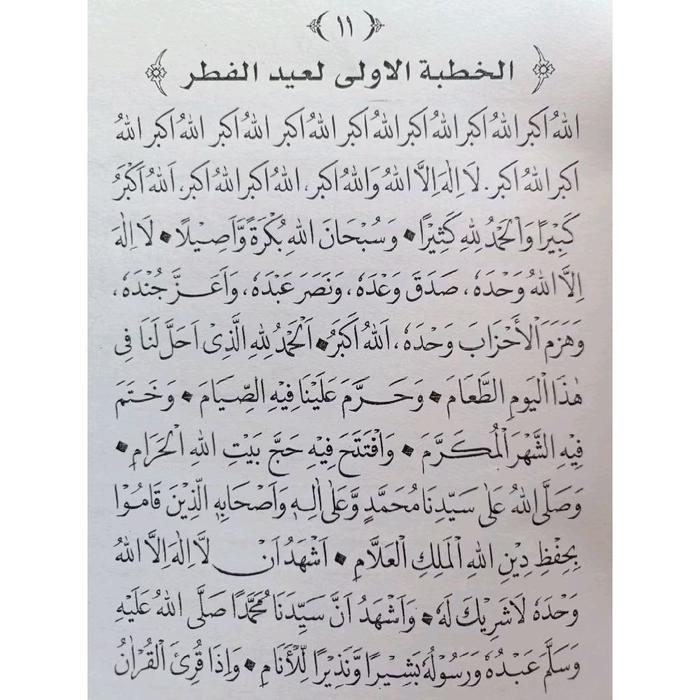 ١١
الخطبة الاولى لعيد الفطر
اللهُ اَكبر اللهُ اَكبر اللهُ اَكبر اللهُ اَكبر اللهُ اَكبر اللهُ اَكبر اللهُ اَكبر اللهُ
اَكبر اللهُ اَكبر. لَا اِلٰهَ اِلَّا اللهُ وَاللهُ اَكبر، اللهُ اَكبر اللهُ اَكبر، اَللهُ اَكْبَرُ
كَبِيْرًا وَالْحَمْدُ لِلهِ كَثِيْرًا ۞ وَسُبْحَانَ اللهِ بُكْرَةً وَّاَصِيْلًا ۞ لَا اِلٰهَ
اِلَّا اللهُ وَحْدَهٗ، صَدَقَ وَعْدَهٗ، وَنَصَرَ عَبْدَهٗ، وَاَعَزَّ جُنْدَهٗ،
وَهَزَمَ الْأَحْزَابَ وَحْدَهٗ، اَللهُ اَكْبَرُ ۞ اَلْحَمْدُ لِلهِ الَّذِىْ اَحَلَّ لَنَا فِى
هٰذَا الْيَوْمِ الطَّعَامَ ۞ وَحَرَّمَ عَلَيْنَا فِيْهِ الصِّيَامَ ۞ وَخَتَمَ
فِيْهِ الشَّهْرَ الْمُكَرَّمَ ۞ وَافْتَتَحَ فِيْهِ حَجَّ بَيْتِ اللهِ الْحَرَامِ ۞
وَصَلَّى اللهُ عَلٰى سَيِّدِنَا مُحَمَّدٍ وَّعَلٰى اٰلِهٖ وَاَصْحَابِهِ الَّذِيْنَ قَامُوْا
بِحِفْظِ دِيْنِ اللهِ الْمَلِكِ الْعَلَّامِ ۞ اَشْهَدُ اَنْ لَّا اِلٰهَ اِلَّا اللهُ
وَحْدَهٗ لَا شَرِيْكَ لَهٗ ۞ وَاَشْهَدُ اَنَّ سَيِّدَنَا مُحَمَّدًا صَلَّى اللهُ عَلَيْهِ
وَسَلَّمَ عَبْدُهٗ وَرَسُوْلُهٗ بَشِيْرًا وَّنَذِيْرًا لِّلْأَنَامِ ۞ وَاِذَا قُرِئَ الْقُرْاٰنُ